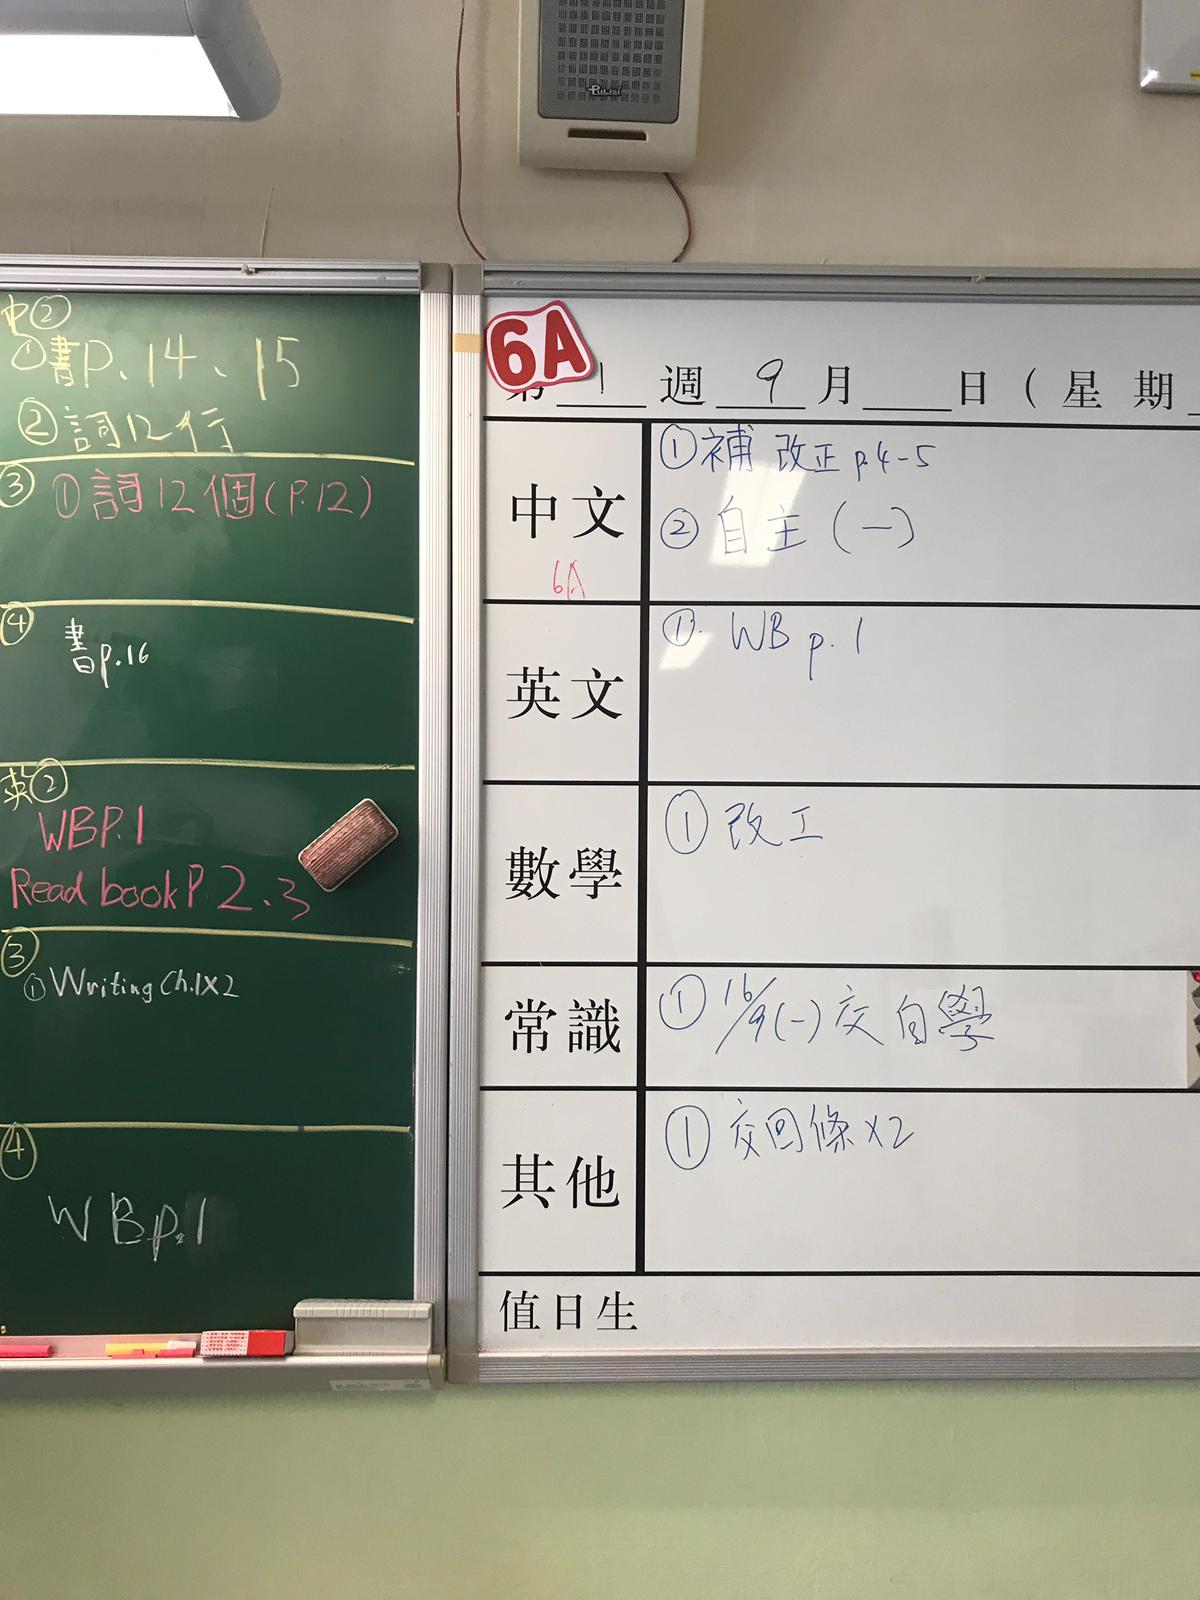 中②
①書P.14、15
②詞12行
③ ①詞12個(P.12)
④
書p.16
英②
WBP.1
Read book P.2.3
③
①Writing Ch.1X2
④
WBp.1
6A
第 1 週 9 月 日 ( 星 期
中文
6A
①補 改正 p.4-5
②自主 (一)
英文
①. WB p.1
數學
①改工
常識
①16/9(一)交自學
其他
①交回條X2
值日生